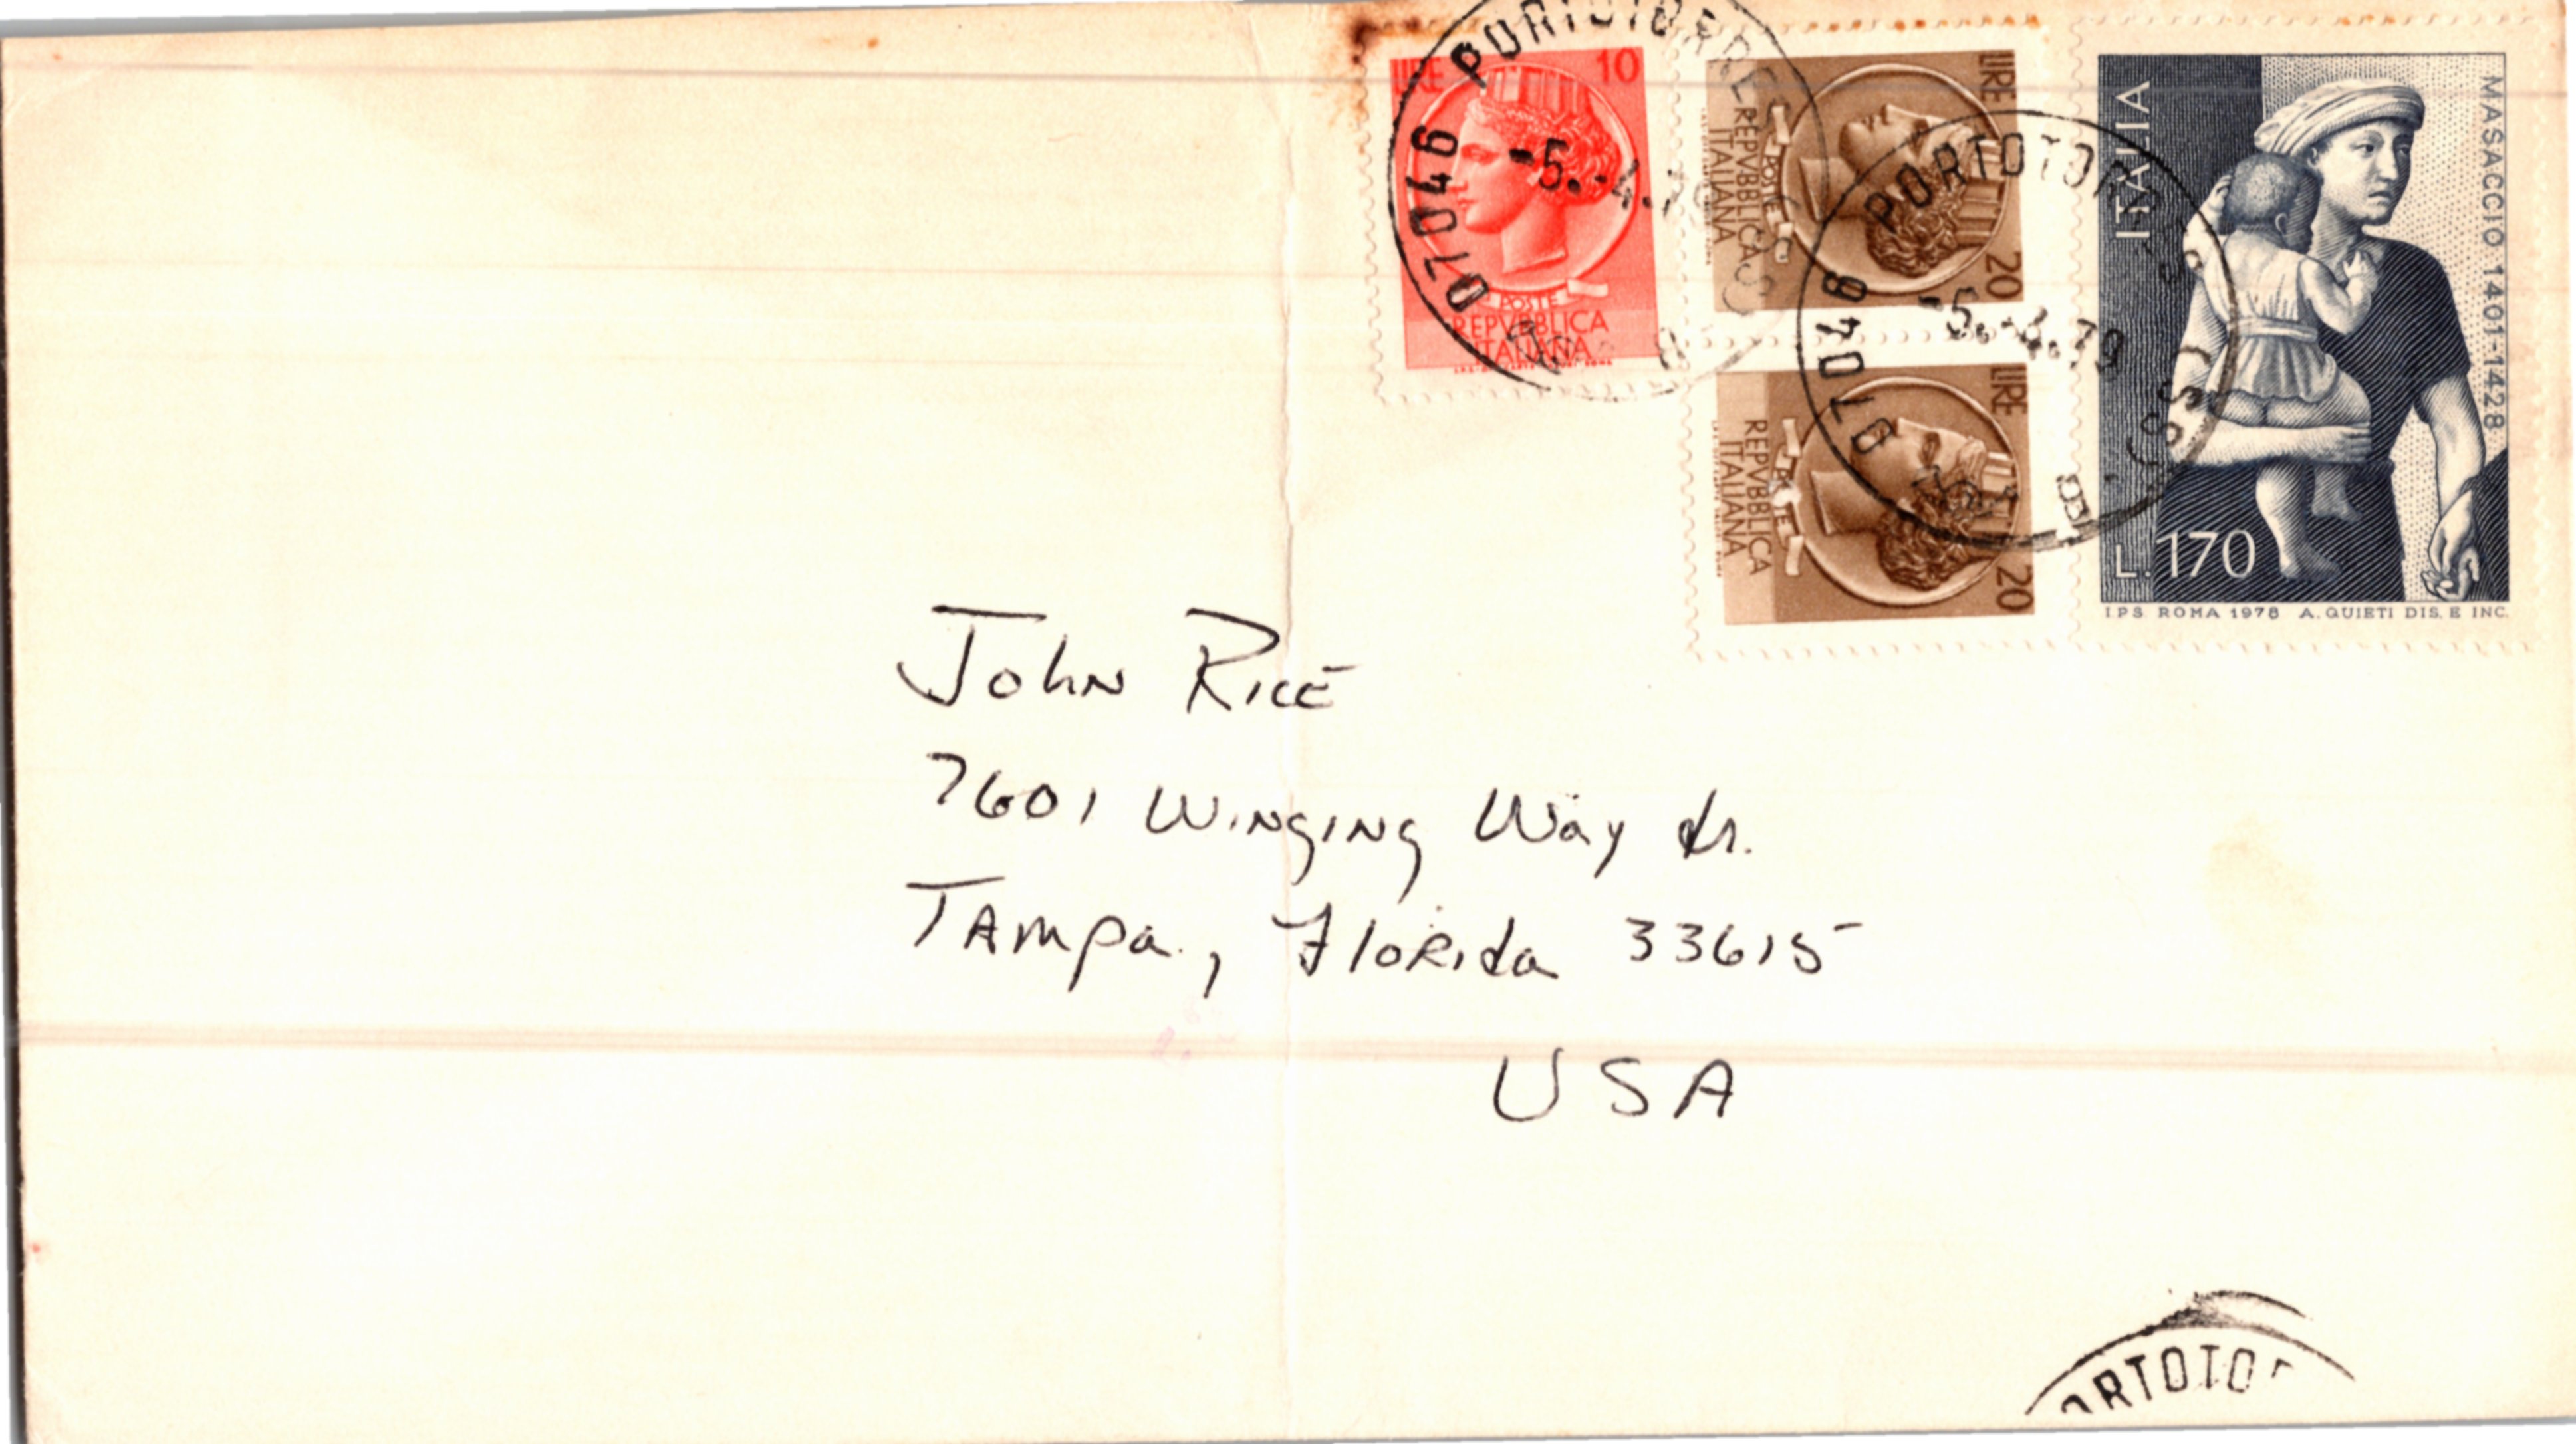 LIRE 10
POSTE
REPVBBLICA
ITALIANA
LIRE 20
POSTE
REPVBBLICA
ITALIANA
LIRE 20
POSTE
REPVBBLICA
ITALIANA
ITALIA
MASACCIO 1401-1428
L.170
I.P.S. ROMA 1978 A. QUIETI DIS. E INC.
07046
-5.-4.
07046
-5.-4.79
John Rice
7601 Winging Way Dr.
Tampa, Florida 33615
USA